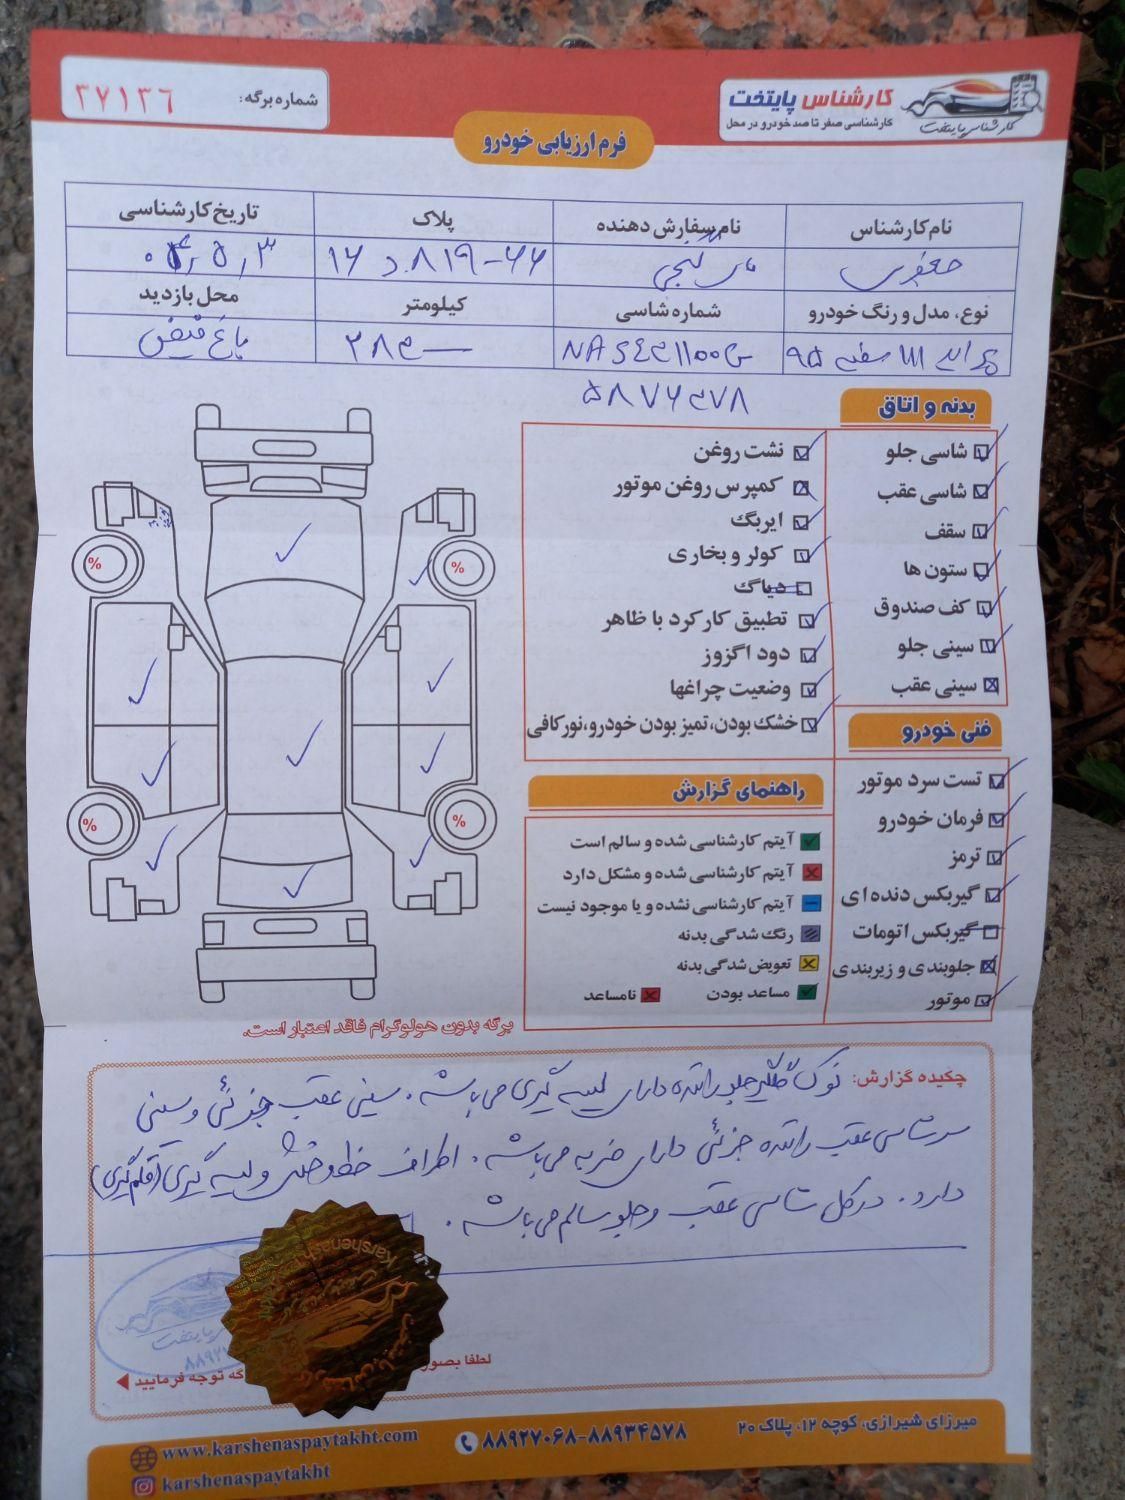 کارشناس پایتخت
کارشناسی صفر تا صد خودرو در محل
کارشناس پایتخت
شماره برگه: ۳۷۱۳۶
فرم ارزیابی خودرو
نام کارشناس
نام سفارش دهنده
پلاک
تاریخ کارشناسی
۶۶-۸۱۹ د ۱۶
نوع، مدل و رنگ خودرو
شماره شاسی
کیلومتر
محل بازدید
پراید ۱۱۱ سفید ۹۵
باغ فیض
بدنه و اتاق
شاسی جلو
شاسی عقب
سقف
ستون ها
کف صندوق
سینی جلو
سینی عقب
نشت روغن
کمپرس روغن موتور
ایربگ
کولر و بخاری
دیاگ
تطبیق کارکرد با ظاهر
دود اگزوز
وضعیت چراغها
خشک بودن، تمیز بودن خودرو، نورکافی
فنی خودرو
تست سرد موتور
فرمان خودرو
ترمز
گیربکس دنده ای
گیربکس اتومات
جلوبندی و زیربندی
موتور
راهنمای گزارش
آیتم کارشناسی شده و سالم است
آیتم کارشناسی شده و مشکل دارد
آیتم کارشناسی نشده و یا موجود نیست
رنگ شدگی بدنه
تعویض شدگی بدنه
مساعد بودن
نامساعد
%
%
%
%
برگه بدون هولوگرام فاقد اعتبار است.
چکیده گزارش: نوک گلگیر جلو راننده دارای لیسه گیری می باشد. سینی عقب جزئی و سینی
سرشاسی عقب راننده جزئی دارای ضربه می باشد. اطراف خط و خش و لیسه گیری (قلم گیری)
دارد. در کل شاسی عقب و جلو سالم می باشد.
لطفا بصور
گه توجه فرمایید
میرزای شیرازی، کوچه ۱۲، پلاک ۲۰
۸۸۹۲۷۰۶۸-۸۸۹۳۴۵۷۸
www.karshenaspaytakht.com
karshenaspaytakht